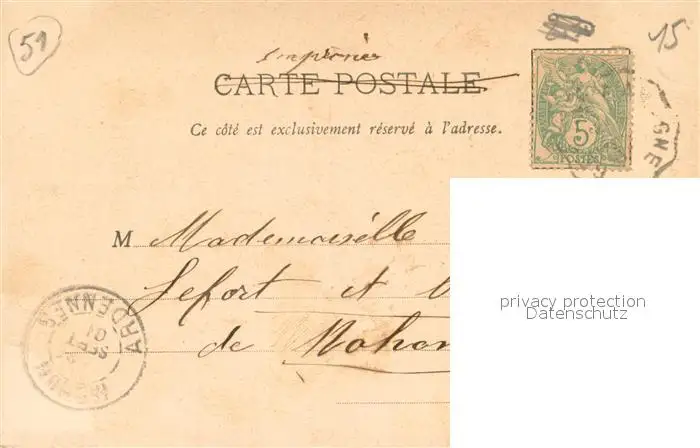 59
15
imprimé
CARTE POSTALE
Ce côté est exclusivement réservé à l'adresse.
5c
POSTES
GNE
M Mademoiselle
Lefort et
de Mohon
ARDENNES
SEPT
01
privacy protection
Datenschutz